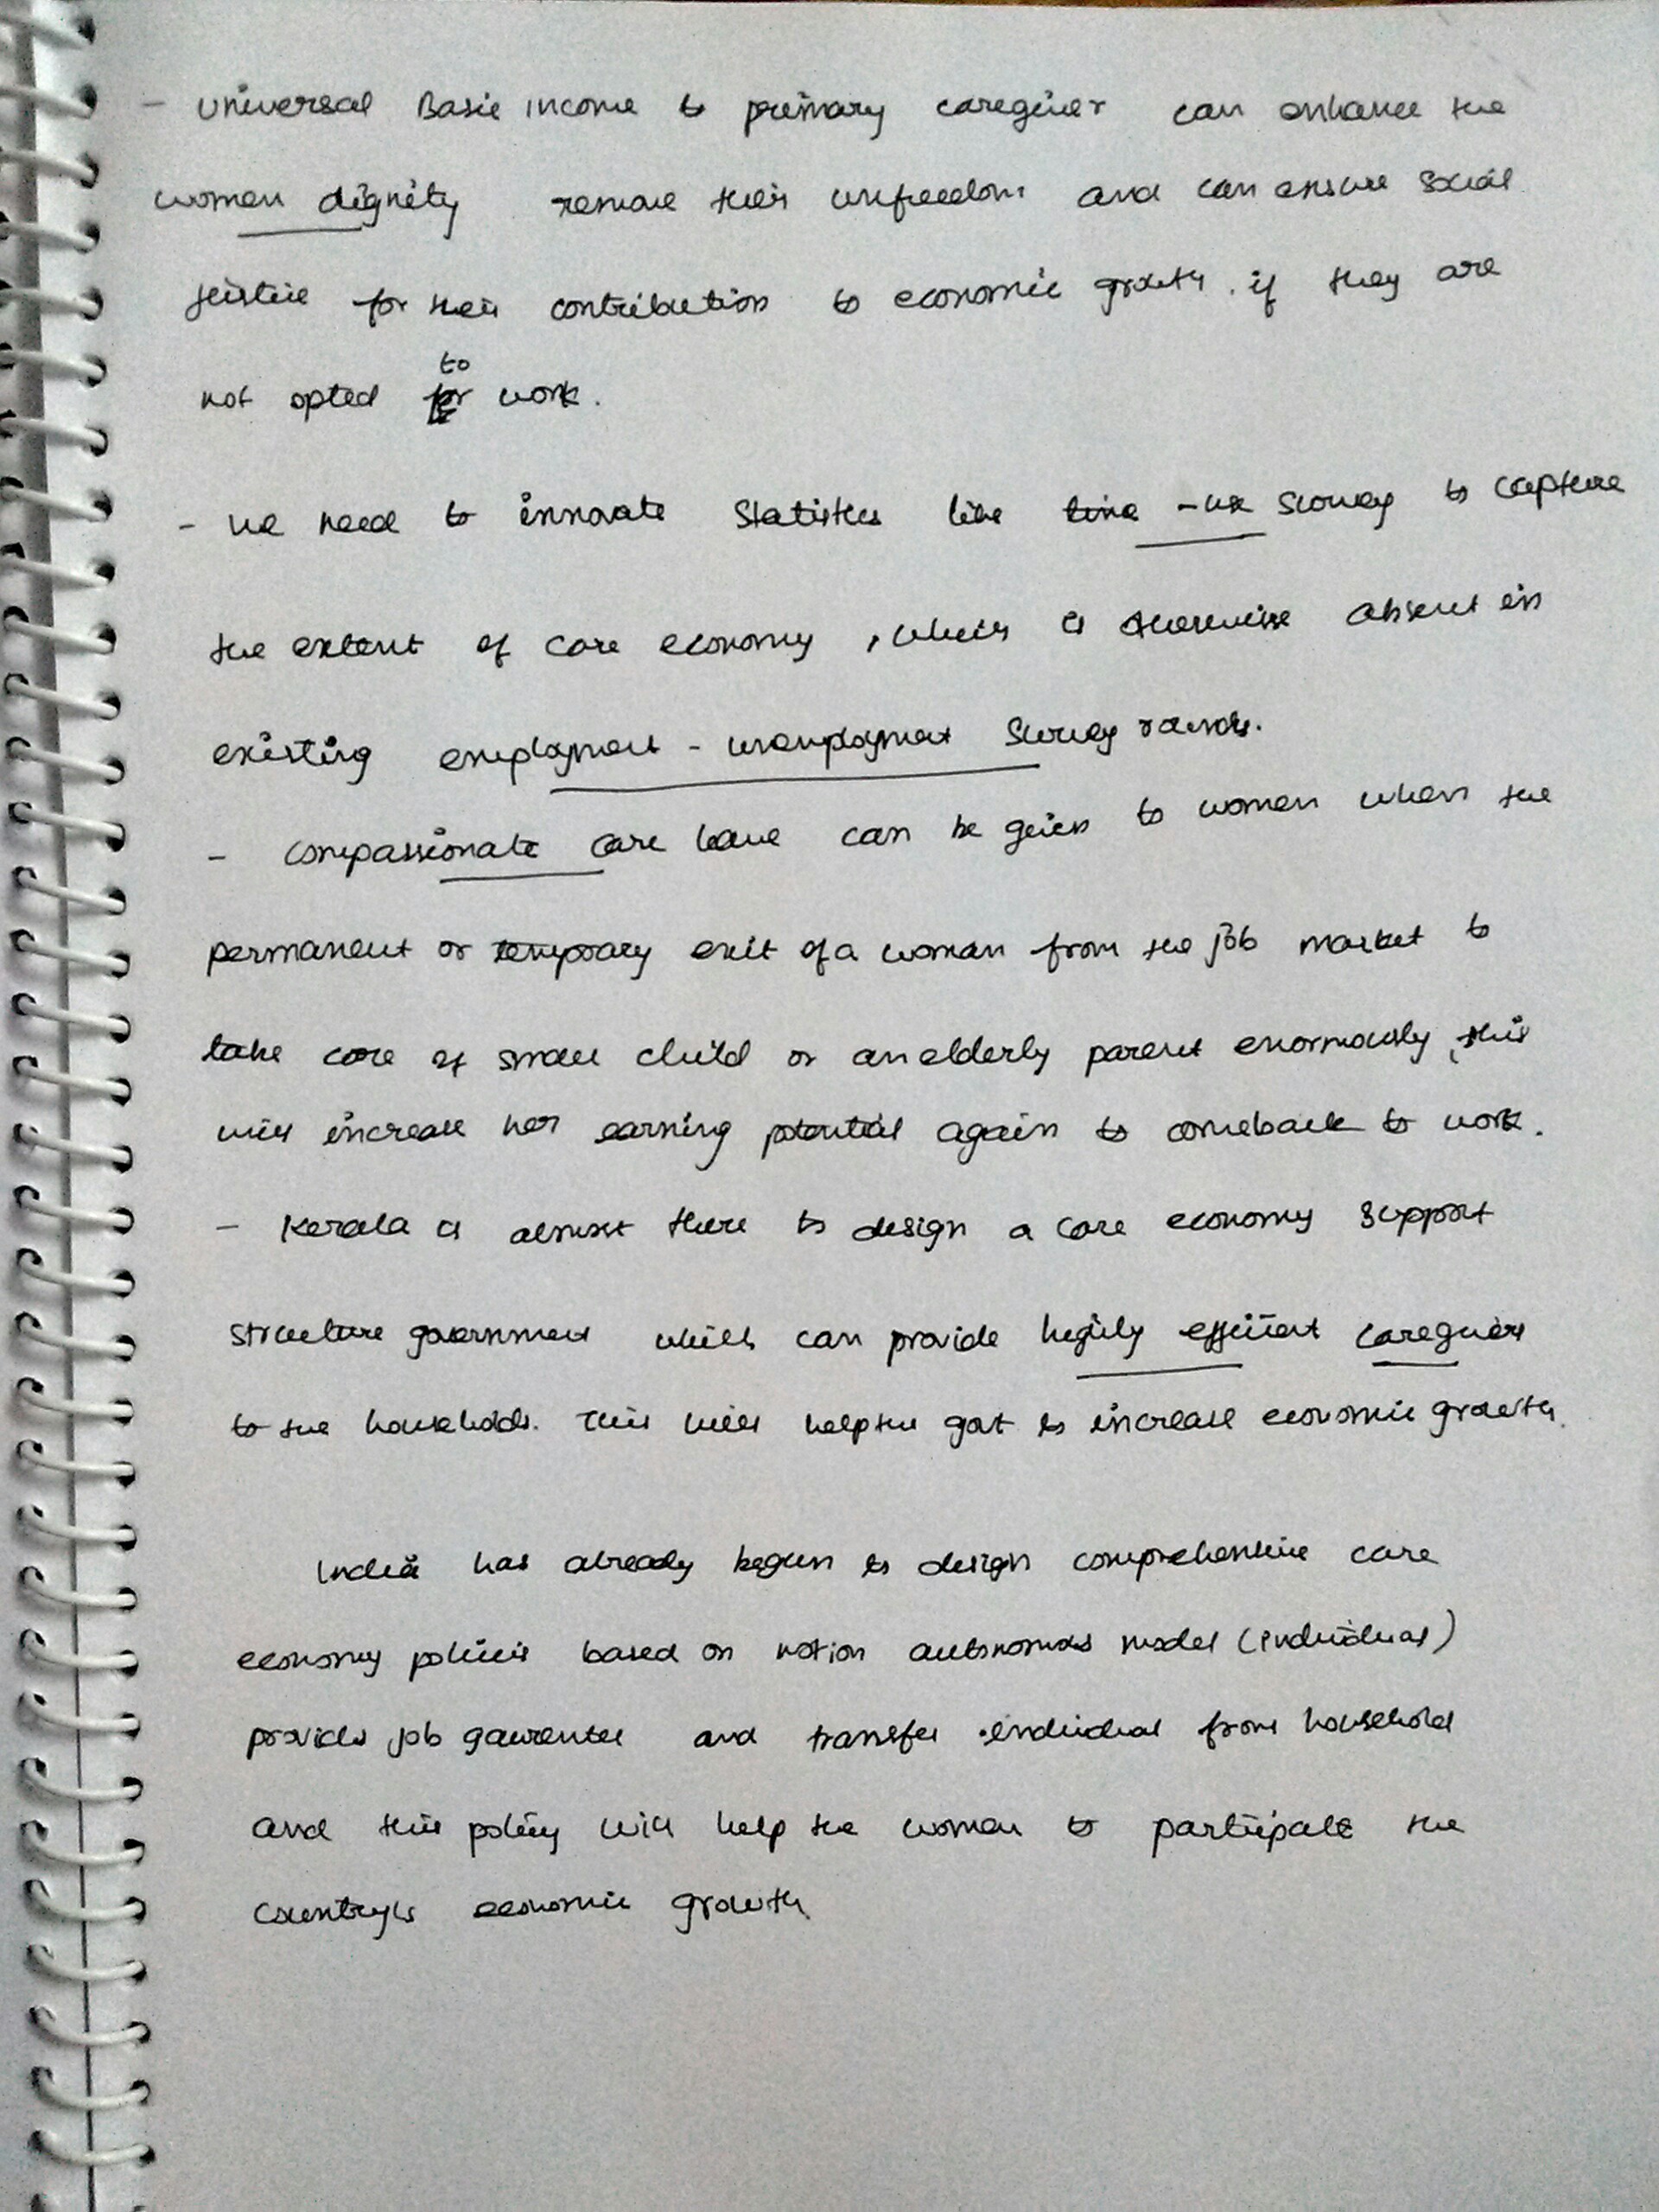 - Universal Basic Income to primary caregiver can enhance the
women dignity remove their unfreedom and can ensure social
justice for their contribution to economic growth. if they are
not opted to work.
- we need to innovate Statistics like time-use Survey to capture
the extent of care economy, which is otherwise absent in
existing employment - unemployment Survey rounds.
- compassionate care leave can be given to women when the
permanent or temporary exit of a woman from the job market to
take care of small child or an elderly parent enormously, this
will increase her earning potential again to comeback to work.
- Kerala is almost there to design a care economy support
structure government which can provide highly efficient caregivers
to the households. This will help the govt to increase economic growth.
India has already begun to design comprehensive care
economy policies based on notion autonomous model (individual)
provides job gaurentee and transfer individual from household
and this policy will help the women to participate the
country's economic growth.